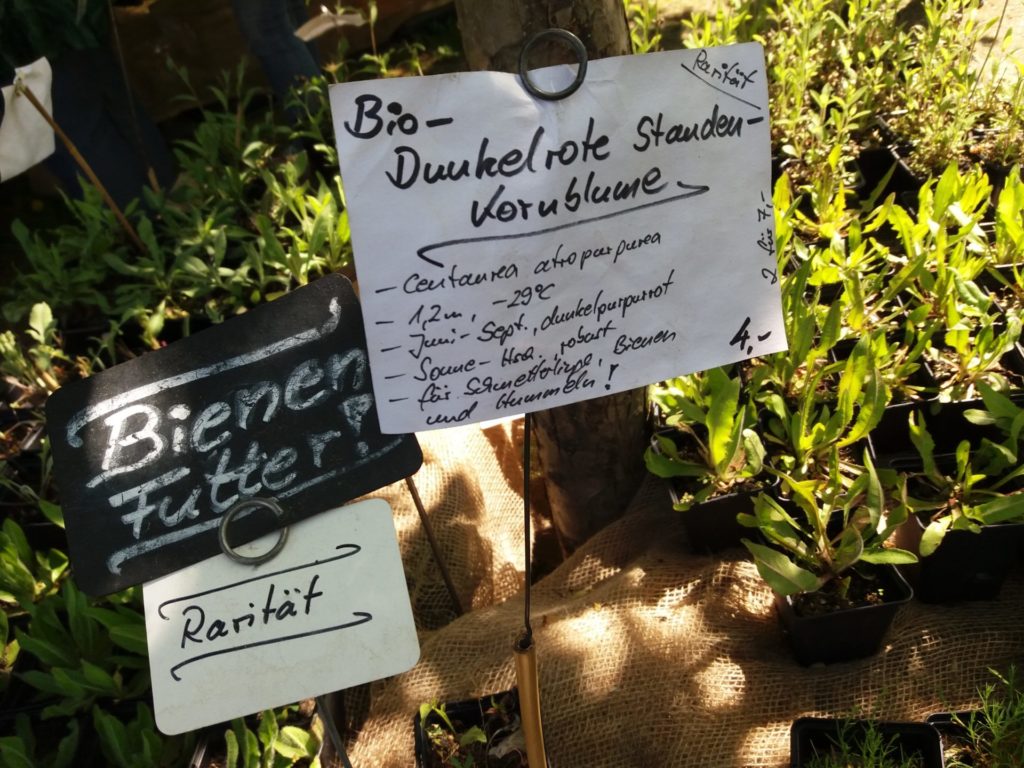 Rarität
Bio-
Dunkelrote Stauden-
Kornblume
- Centaurea atropurpurea
- 1,2m, -29°C
- Juni-Sept., dunkelpurpurrot
- Sonne-Hsch. robust
- für Schmetterlinge, Bienen
und Hummeln!
4,-
2 für 7,-
Bienen
Futter!
Rarität